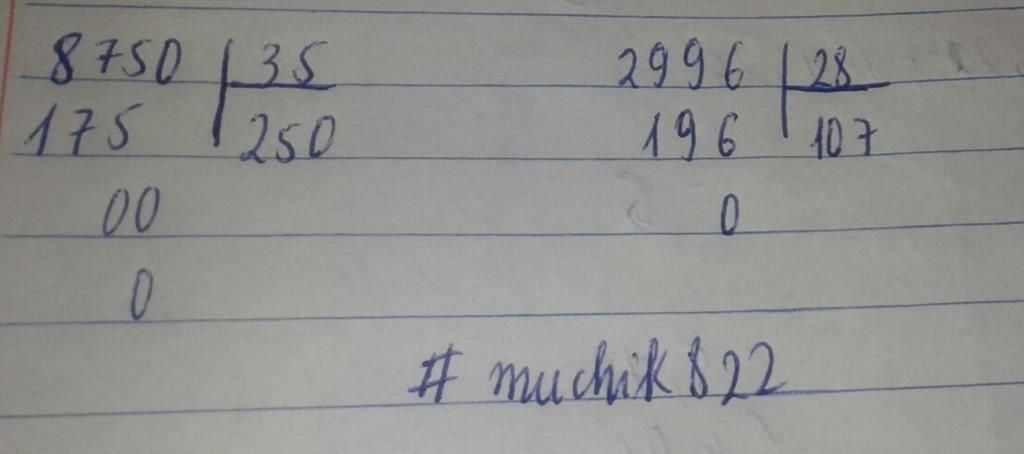 8750 | 35
175 | 250
00
0
2996 | 28
196 | 107
0
# muchik822